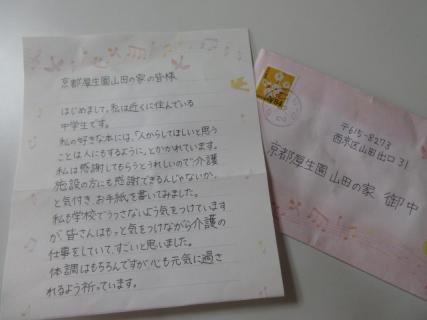 京都厚生園山田の家の皆様
はじめまして。私は近くに住んでいる
中学生です。
私の好きな本には、「人からしてほしいと思う
ことは人にもするように」とかかれています。
私は感謝してもらうとうれしいので"介護
施設の方にも感謝できるんじゃないか、
と気付き、お手紙を書いてみました。
私も学校でうつさないよう気をつけています
が、皆さんはもっと気をつけながら介護の
仕事をしていて、すごいと思いました。
体調はもちろんですが心も元気に過さ
れるよう祈っています。
〒615-8273
西京区山田出口31
京都厚生園 山田の家 御中